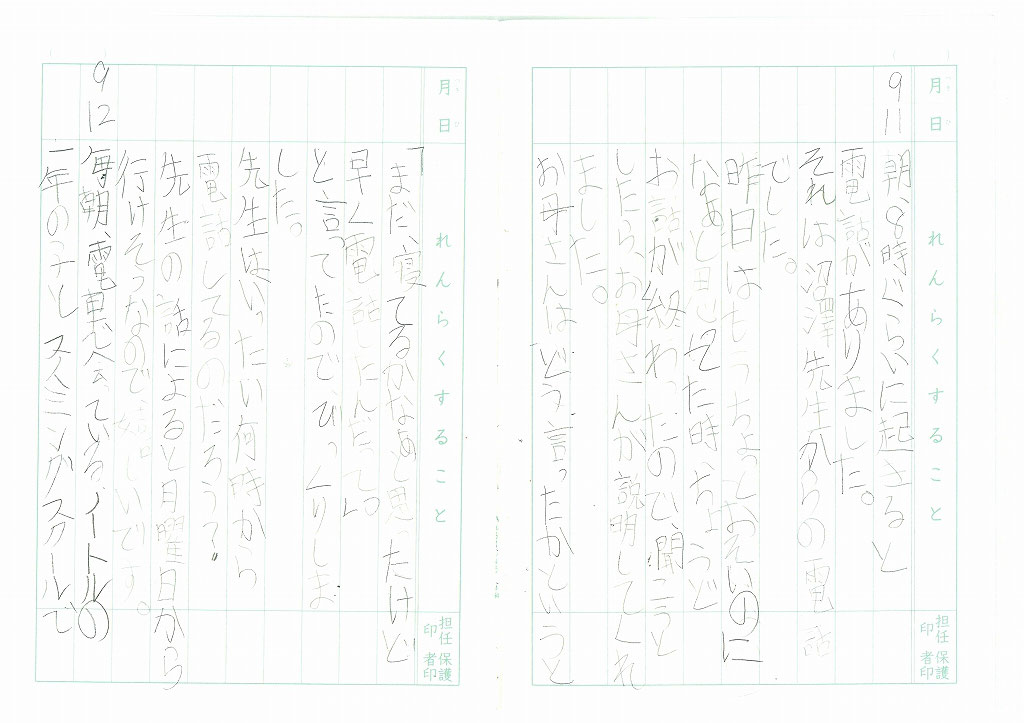 月日
れんらくすること
担任印
保護者印
9 11
朝、8時ぐらいに起きると
電話がありました。
それは沼澤先生からの電話
でした。
昨日はもうちょっとおそいのに
なぁと思てた時、ちょうど
お話が終わったので、聞こうと
したら、お母さんが説明してくれ
ました。
お母さんはどう言ったかというと
月日
れんらくすること
担任印
保護者印
「まだ、寝てるかなぁと思ったけど
早く電話したんだって。」
と言ってたのでびっくりしま
した。
先生はいったい何時から
電話してるのだろう?"
先生の話によると日曜日から
行けそうなので、嬉しいです。
9 12
毎朝、電車で会っている、イートルの
一年の子と スイミングスクールで